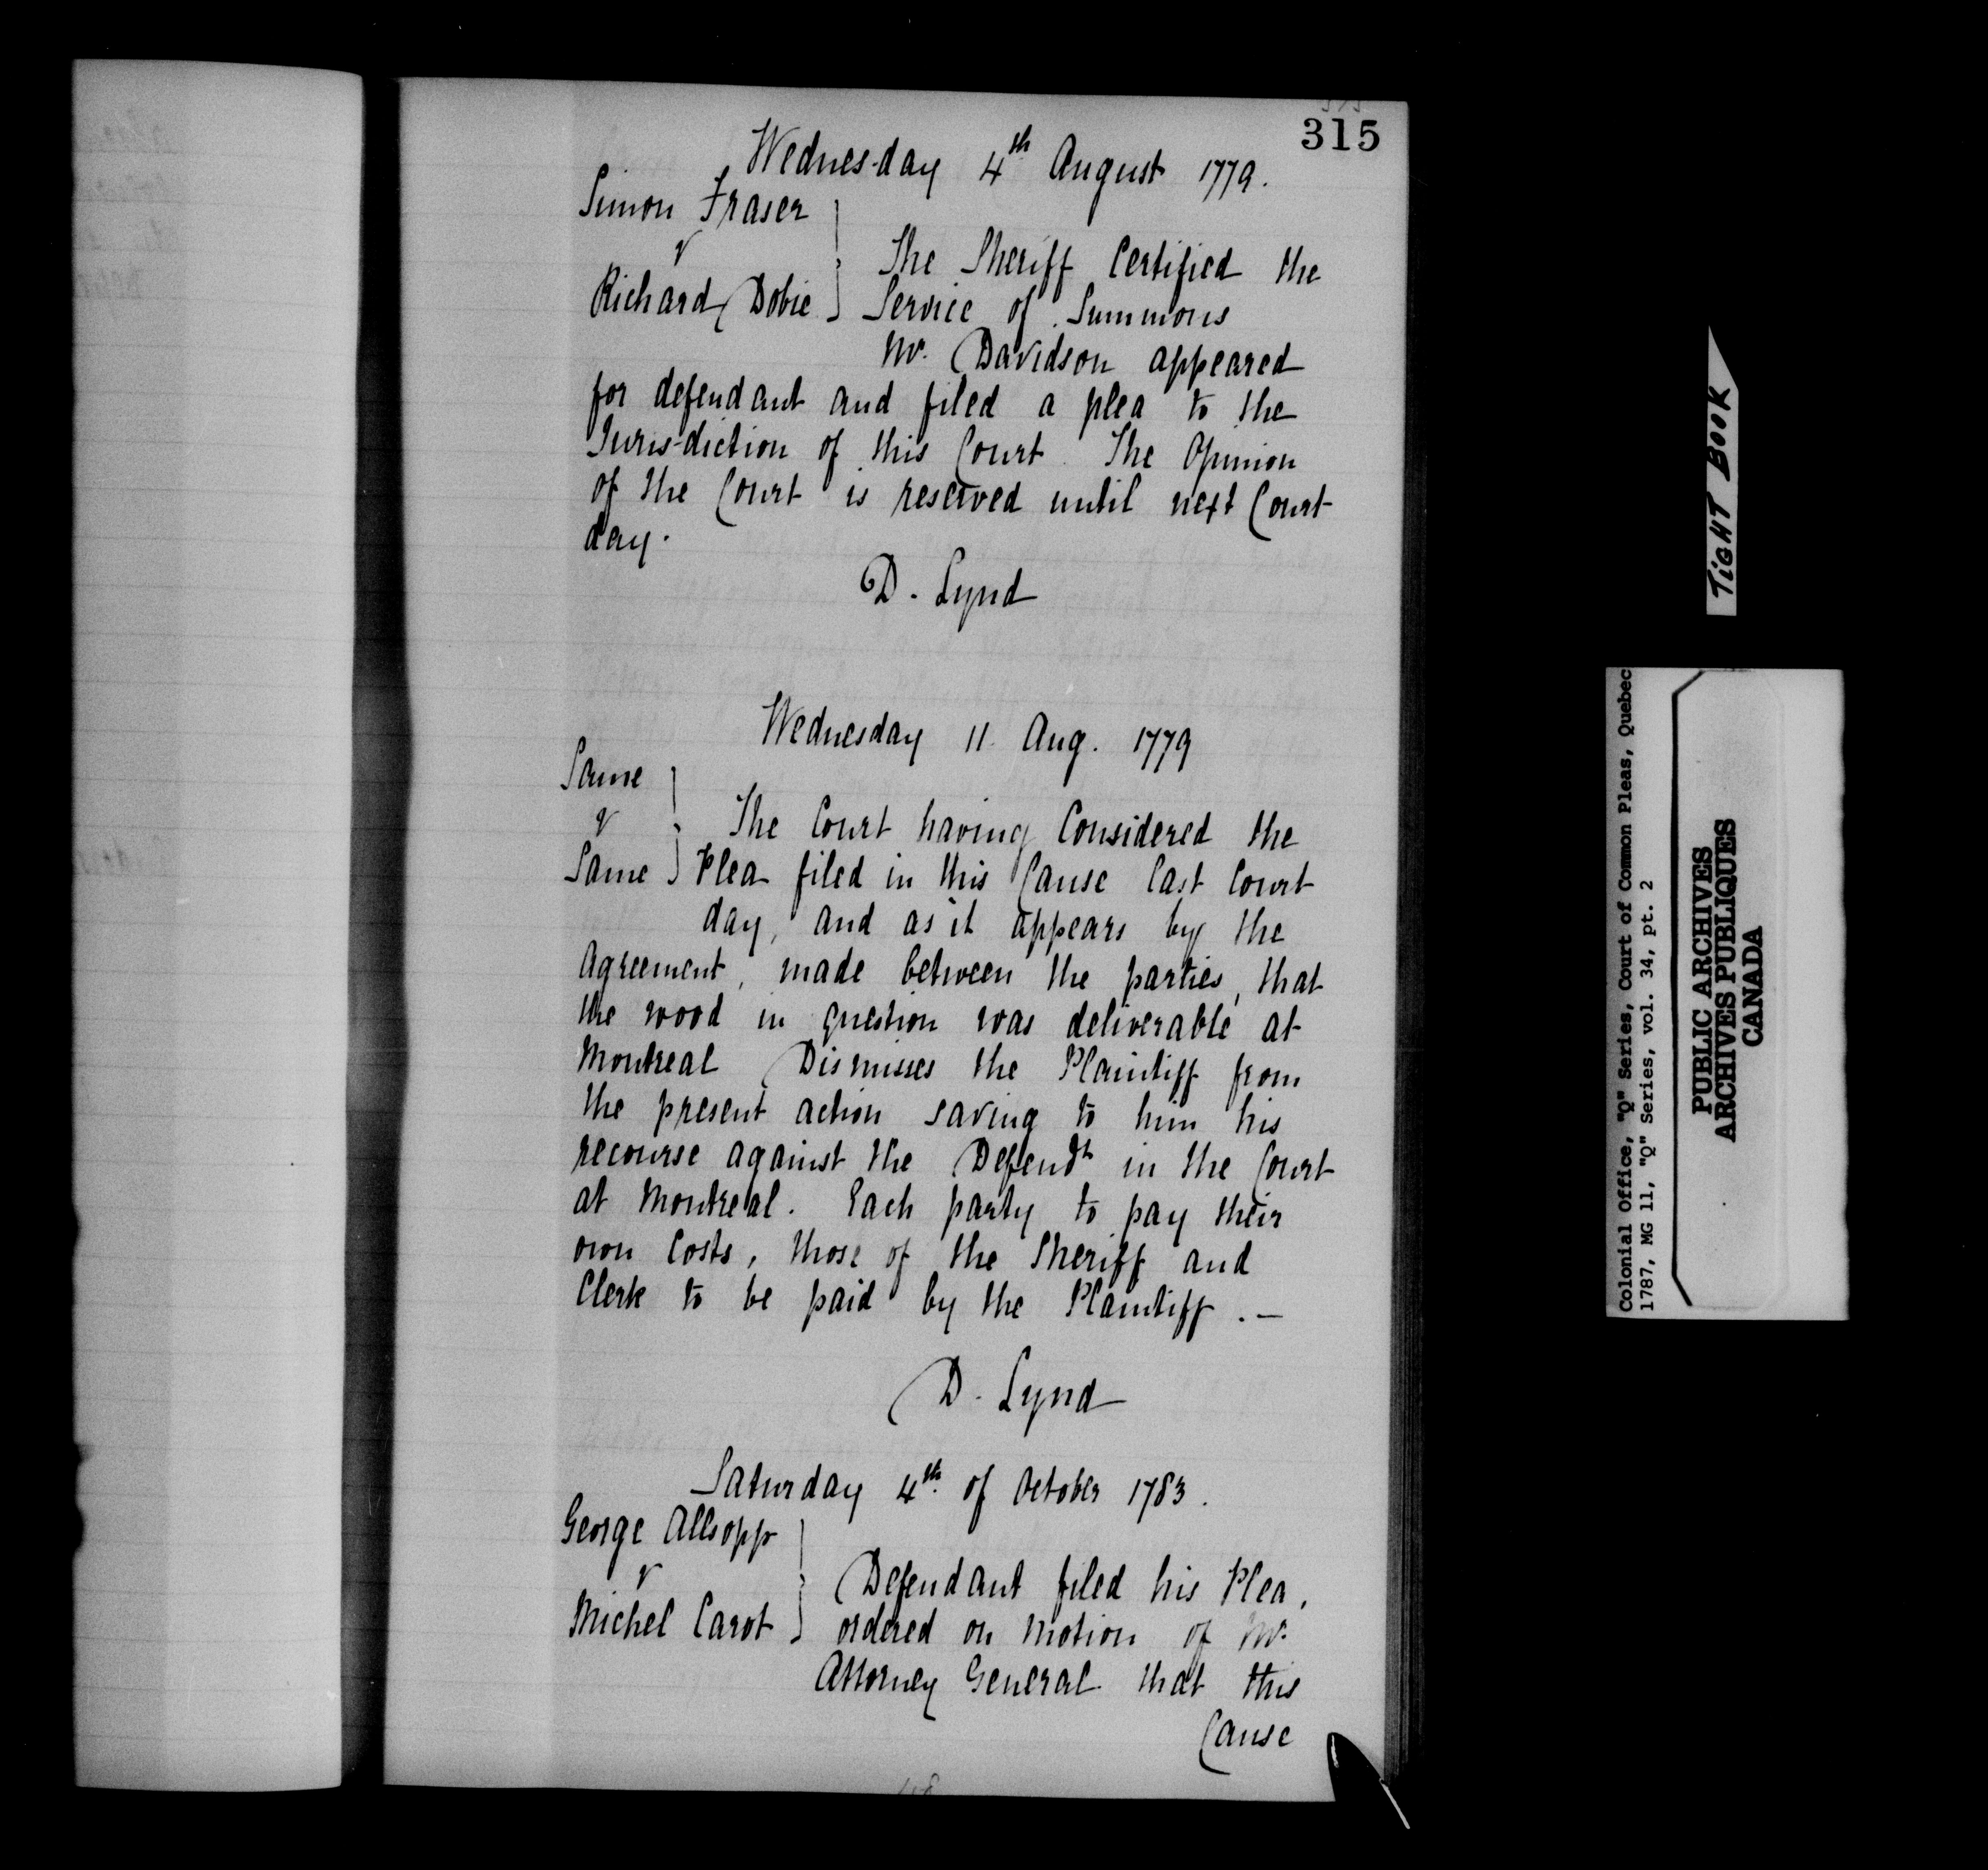 315
Wednesday 4th August 1779.
Simon Fraser
v
Richard Dobie
The Sheriff Certified the
Service of Summons
Mr. Davidson appeared
for defendant and filed a plea to the
Jurisdiction of this Court. The Opinion
of the Court is reserved until next Court
day.
D. Lynd
Wednesday 11. Aug. 1779
Same
v
Same
The Court having Considered the
Plea filed in this Cause last Court
day, and as it appears by the
Agreement, made between the parties, that
the wood in question was deliverable at
Montreal Dismisses the Plaintiff from
the present action saving to him his
recourse against the Defendt in the Court
at Montreal. Each party to pay their
own Costs, those of the Sheriff and
Clerk to be paid by the Plaintiff. —
D. Lynd
Saturday 4th. of October 1783.
George Allsopp
v
Michel Carot
Defendant filed his Plea,
ordered on motion of Mr.
Attorney General that this
Cause
TIGHT BOOK
Colonial Office, "Q" Series, Court of Common Pleas, Quebec
1787, MG 11, "Q" Series, vol. 34, pt. 2
PUBLIC ARCHIVES
ARCHIVES PUBLIQUES
CANADA